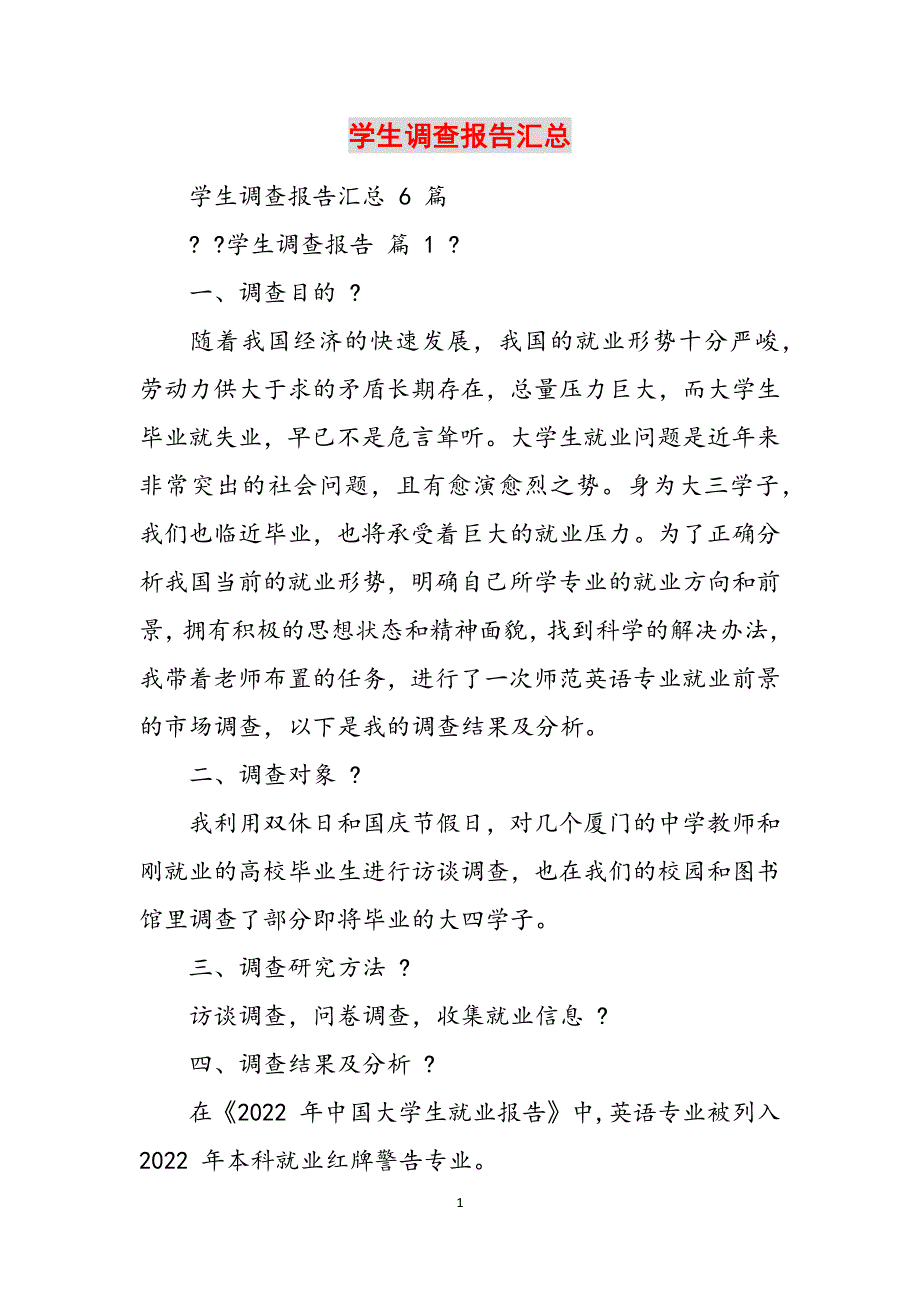 学生调查报告汇总
学生调查报告汇总 6 篇
? ?学生调查报告 篇 1 ?
一、调查目的 ?
随着我国经济的快速发展，我国的就业形势十分严峻，
劳动力供大于求的矛盾长期存在，总量压力巨大，而大学生
毕业就失业，早已不是危言耸听。大学生就业问题是近年来
非常突出的社会问题，且有愈演愈烈之势。身为大三学子，
我们也临近毕业，也将承受着巨大的就业压力。为了正确分
析我国当前的就业形势，明确自己所学专业的就业方向和前
景，拥有积极的思想状态和精神面貌，找到科学的解决办法，
我带着老师布置的任务，进行了一次师范英语专业就业前景
的市场调查，以下是我的调查结果及分析。
二、调查对象 ?
我利用双休日和国庆节假日，对几个厦门的中学教师和
刚就业的高校毕业生进行访谈调查，也在我们的校园和图书
馆里调查了部分即将毕业的大四学子。
三、调查研究方法 ?
访谈调查，问卷调查，收集就业信息 ?
四、调查结果及分析 ?
在《2022 年中国大学生就业报告》中，英语专业被列入
2022 年本科就业红牌警告专业。
1